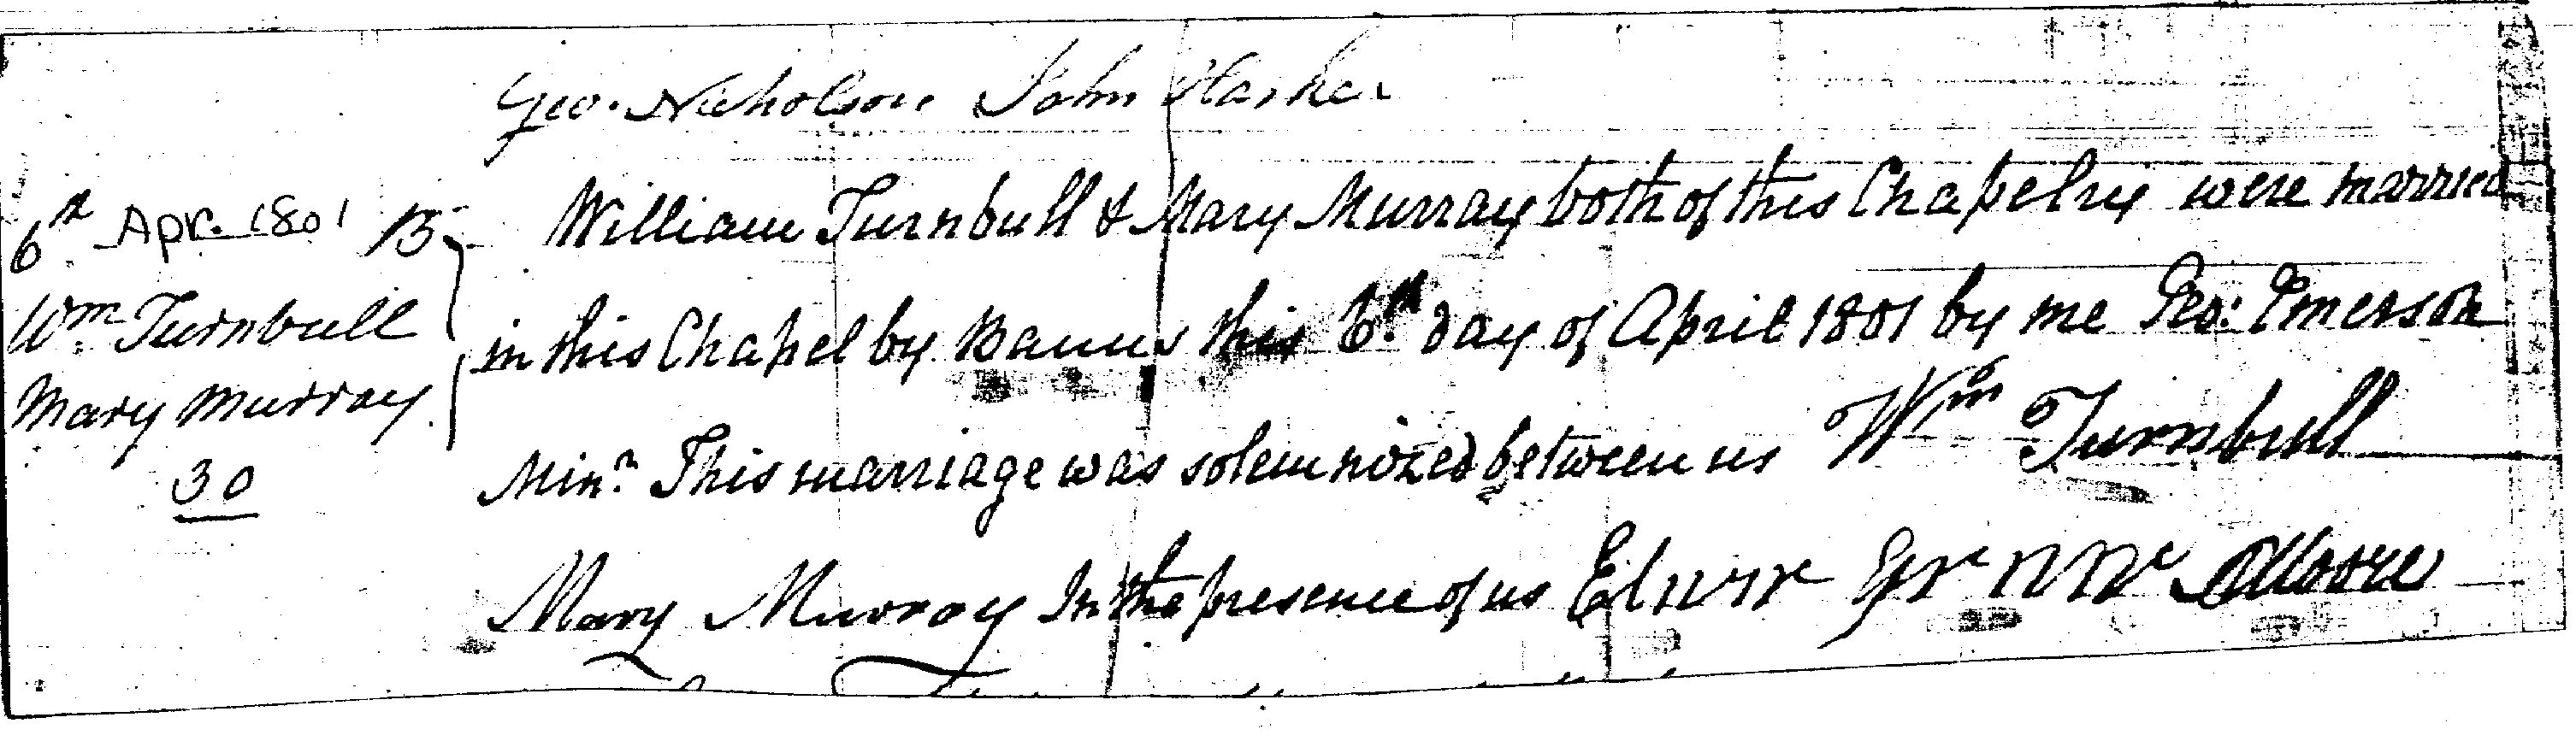 Geo. Nicholson John Harker
6th Apr. 1801 B
Wm Turnbull
Mary Murray
30
William Turnbull & Mary Murray both of this Chapelry were married
in this Chapel by Banns this 6th day of April 1801 by me Geo: Emerson
Minr. This marriage was solemnized between us Wm Turnbull
Mary Murray In the presence of us Moore